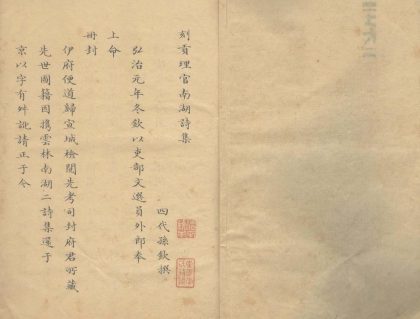 刻貢理官南湖詩集
四代孫欽撰
弘治元年冬欽以吏部文選員外郎奉
上命
冊封
伊府便道歸宣城檢閱先考司封府君所藏
先世圖籍因攜雲林南湖二詩集還于
京以字有舛訛請正于今